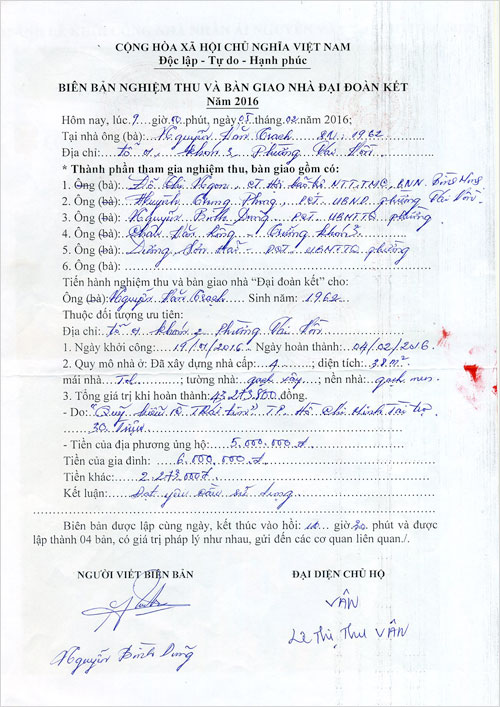 CỘNG HÒA XÃ HỘI CHỦ NGHĨA VIỆT NAM
Độc lập - Tự do - Hạnh phúc
BIÊN BẢN NGHIỆM THU VÀ BÀN GIAO NHÀ ĐẠI ĐOÀN KẾT
Năm 2016
Hôm nay, lúc 9 giờ 00 phút, ngày 05 tháng 02 năm 2016;
Tại nhà ông (bà): Nguyễn Văn Trach SN: 1962
Địa chỉ: tổ khóm 3, Phường
* Thành phần tham gia nghiệm thu, bàn giao gồm có:
1. Ông (bà): Ngon,
2. Ông (bà): Huỳnh Chung Phong, PCT. UBND phường
3. Ông (bà): Nguyễn Bình Dũng PCT. UBMTTQ phường
4. Ông (bà): Văn - Trưởng khóm 3
5. Ông (bà): Dương - PCT. UBMTTQ phường
6. Ông (bà):
Tiến hành nghiệm thu và bàn giao nhà “Đại đoàn kết” cho:
Ông (bà): Nguyễn Văn Trach Sinh năm: 1962
Thuộc đối tượng ưu tiên:
Địa chỉ: tổ khóm Phường
1. Ngày khởi công: 19/01/2016 Ngày hoàn thành: 04/02/2016
2. Quy mô nhà ở: Đã xây dựng nhà cấp: 4; diện tích: 38 m²
mái nhà Tol; tường nhà: gạch xây; nền nhà: gạch men
3. Tổng giá trị khi hoàn thành: 43.273.500 đồng.
- Do: "Quỹ Trái tim" TP. Hồ Chí Minh tài trợ
30 Triệu
- Tiền của địa phương ủng hộ: 5.000.000 đ
Tiền của gia đình: 6.000.000 đ
Tiền khác:
Kết luận: Đạt yêu cầu sử dụng
Biên bản được lập cùng ngày, kết thúc vào hồi: 10 giờ 30 phút và được
lập thành 04 bản, có giá trị pháp lý như nhau, gửi đến các cơ quan liên quan./.
NGƯỜI VIẾT BIÊN BẢN
ĐẠI DIỆN CHỦ HỘ
VÂN
Lê Thị Thu VÂN
Nguyễn Bình Dũng